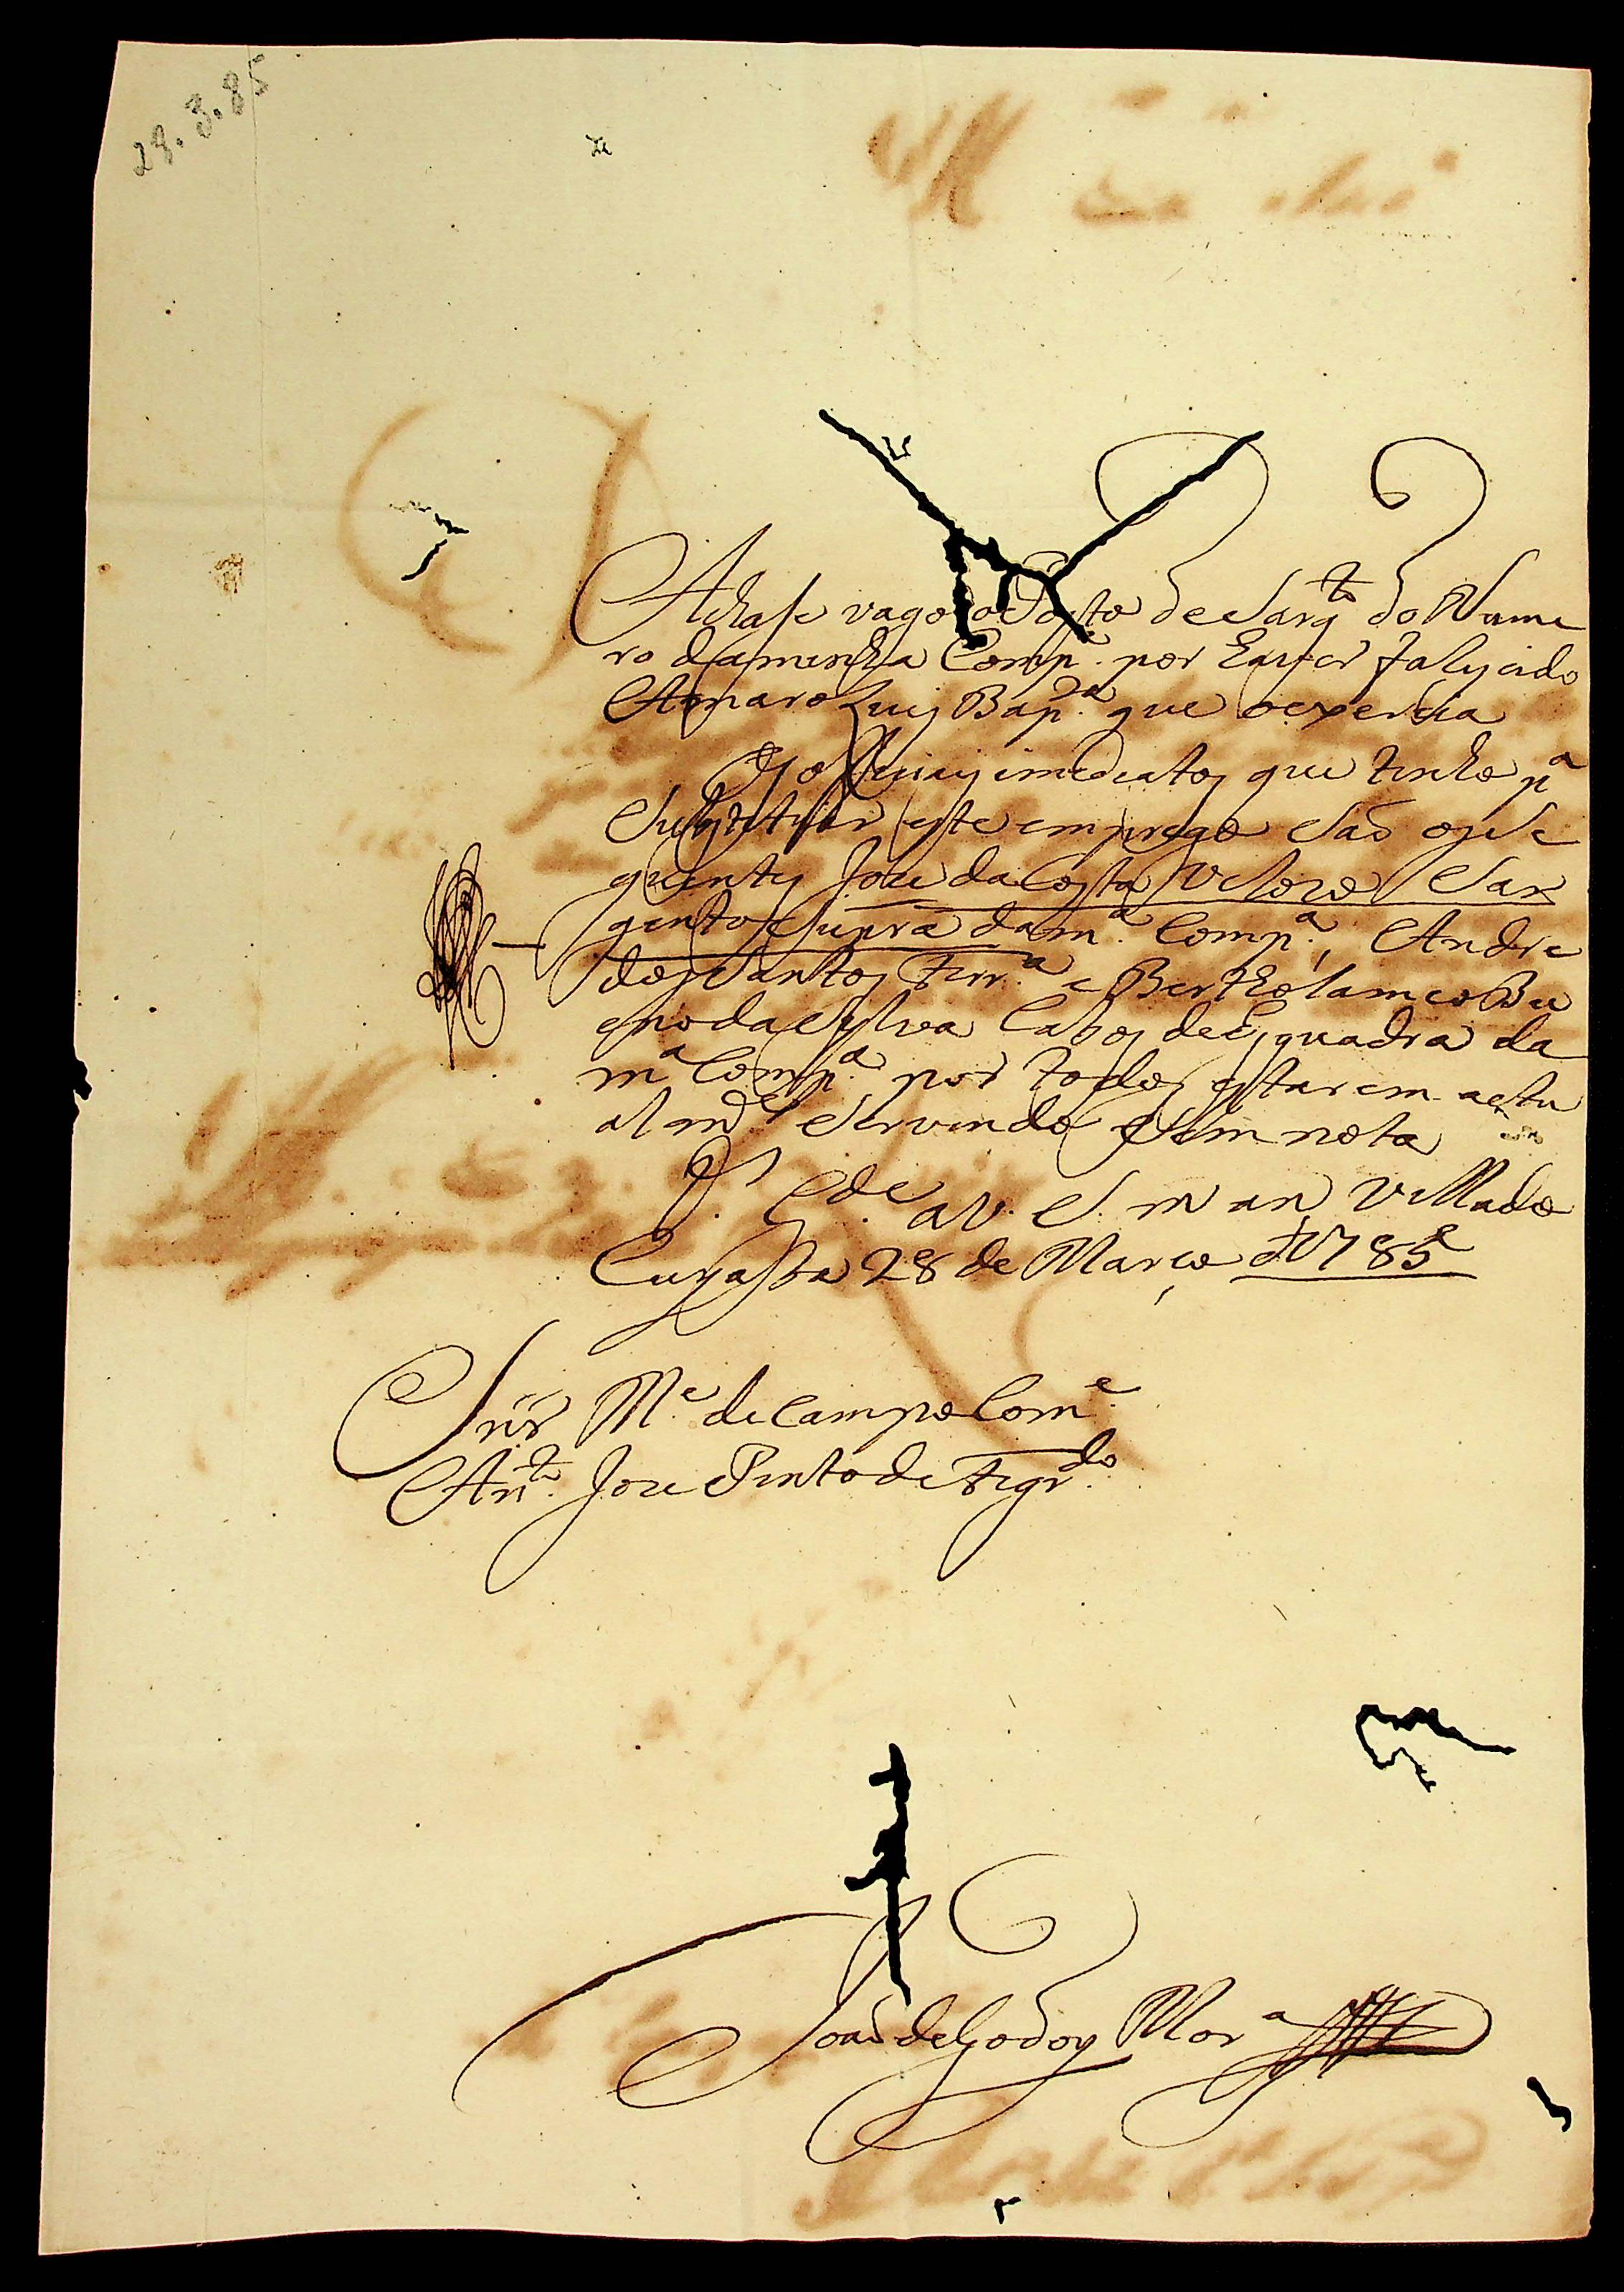 28.3.85
Achase vago o Posto de Sarg.to do Nume
ro daminha Comp.ª por haver falycido
Amaro Luis Bap.ta que oexercia
Os imediatos que tenho p.ª
Substituir este emprego São osSe
guintes Joze daCosta Velozo Sar
gento Supra dam.ª Comp.ª, Andre
dosSantos Ferr.ª e Bertholameo Bu
enodaSylva Cabos deEsquadra da
m.ª Comp.ª por todos estarem actu
alm.te Servindo eSem nota
D.s G.de a V. S. m an Villado
Cuyaba 28 de Março d1785
Snr M.e deCampo Com.e
Ant.o Joze Pinto de Figr.do
Joaõ deGodoy Mor.ª